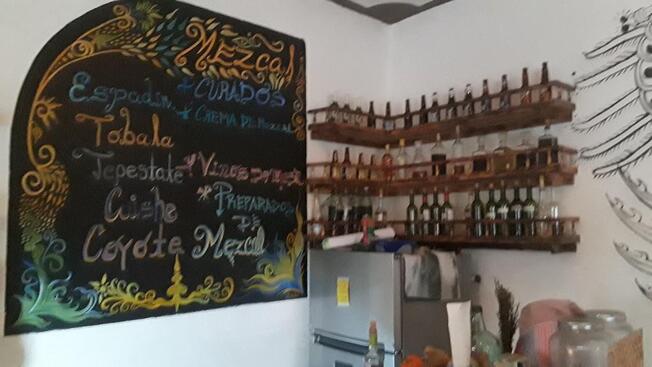 Mezcal
Espadin
* CURADOS
* CREMA DE Mezcal
Tobala
Tepestate
* Vinos
Cuishe
* PREPARADOS
DE
Mezcal
Coyote